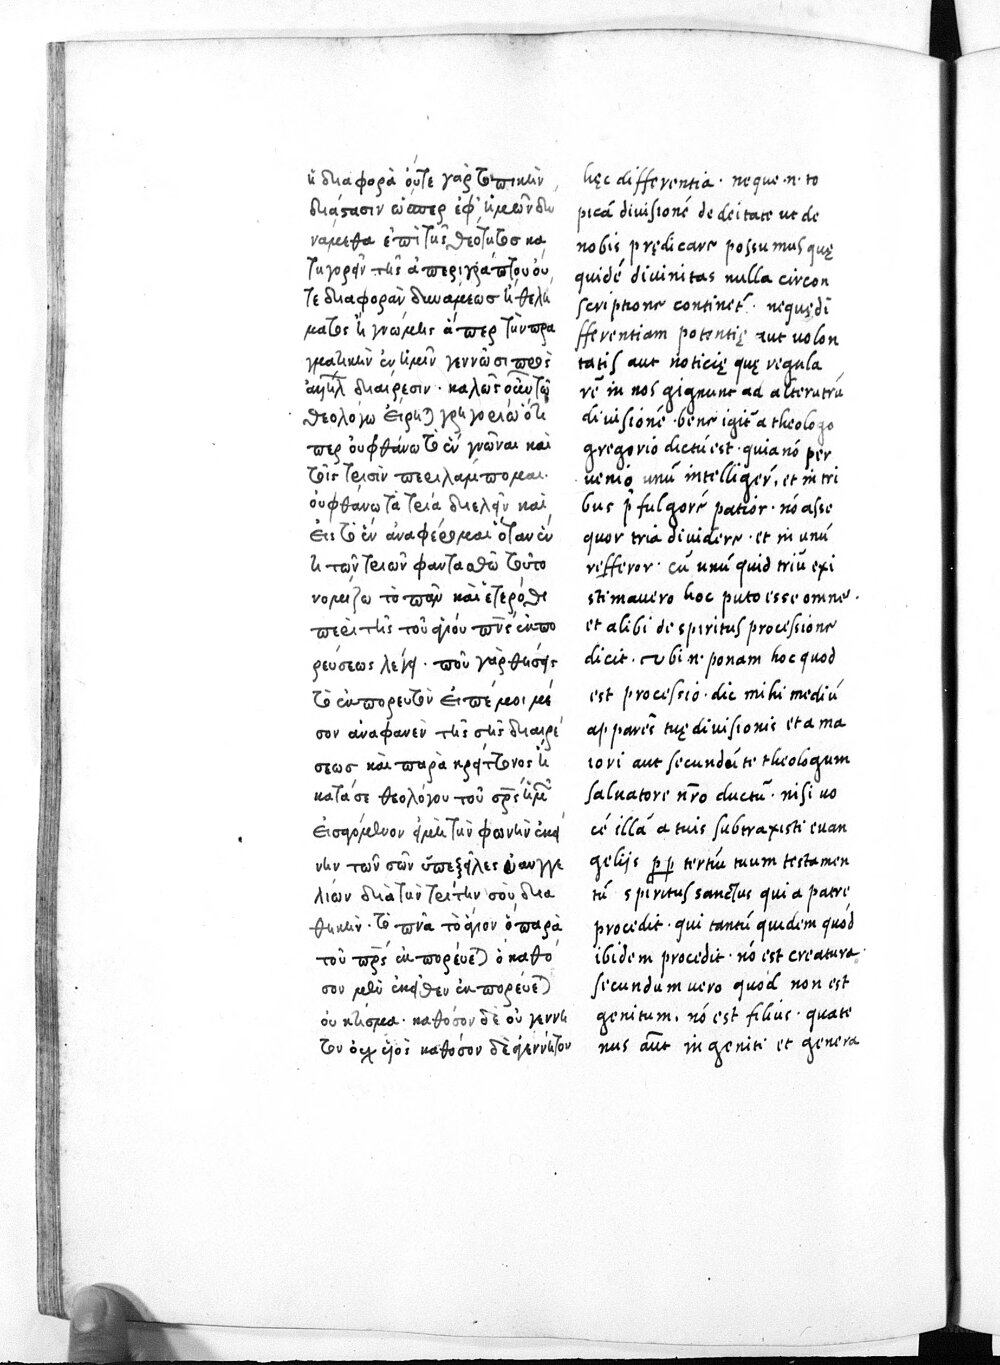 ἡ διαφορὰ οὔτε γὰρ τοπικὴν
διάστασιν ὥσπερ ἐφ' ἡμῶν δυ
νάμεθα ἐπὶ τῆς θεότητος κα
τηγορεῖν τῆς ἀπεριγράπτου οὔ
τε διαφορὰν δυνάμεως ἢ θελή
ματος ἢ γνώμης ἅπερ τὴν πρα
γματικὴν ἐν ἡμῖν γεννῶσι πρὸς
διαίρεσιν · καλῶς οὖν τῷ
θεολόγῳ εἴρηται γρηγορίῳ ὅτι
περ οὐ φθάνω τὸ ἓν γνῶναι καὶ
τοῖς τρισὶν περιλάμπομαι ·
οὐ φθάνω τὰ τρία διελεῖν καὶ
εἰς τὸ ἓν ἀναφέρομαι ὅταν ἕν
τι τῶν τριῶν φαντασθῶ τοῦτο
νομίζω τὸ πᾶν καὶ ἑτέρωθι
περὶ τῆς τοῦ ἁγίου πνς ἐκπο
ρεύσεως λέγει · ποῦ γὰρ θήσεις
τὸ ἐκπορευτὸν εἰπέ μοι μέ
σον ἀναφανὲν τῆς σῆς διαιρέ
σεως καὶ παρὰ κρείττονος ἢ
κατά σε θεολόγου τοῦ σρς ἡμῶν
εἰσαγόμενον εἰ μὴ τὴν φωνὴν ἐκεί
νην τῶν σῶν ὑπεξεῖλες εὐαγγε
λίων διὰ τὴν τρίτην σου δια
θήκην · τὸ πνα τὸ ἅγιον ὃ παρὰ
τοῦ πρς ἐκπορεύεται ὃ καθό
σον μὲν ἐκεῖθεν ἐκπορεύεται
οὐ κτίσμα · καθόσον δὲ οὐ γεννη
τὸν οὐχ υἱὸς καθόσον δὲ ἀγεννήτου
hęc differentia · neque · n · to
picā divisionē de deitate ut de
nobis prędicare possumus quę
quidē divinitas nulla circon
scriptione continet · neque di
fferentiam potentię aut volon
tatis aut noticię quę regula
rē in nos gignunt ad alterutrū
divisionē · bene igit̄ a theologo
gregorio dictū est · quia nō per
uenio unū intelligere, et in tri
bus p̄fulgorē patior · nō asse
quor tria dividere · et in unū
refferor · cū unū quid triū exi
stimavero hoc puto esse omne ·
et alibi de spiritus processione
dicit · ubi n · ponam hoc quod
est processio · dic mihi mediū
apparēs tuę divisionis et a ma
iori aut secundū te theologum
salvatore nr̄o ductū · nisi uo
cē illā a tuis subtraxisti euan
gelijs pp tertiū tuum testamen
tū spiritus sanctus qui a patre
procedit · qui tantū quidem quod
ibidem procedit · nō est creatura ·
secundum vero quod non est
genitum, nō est filius · quate
nus aūt ingeniti et genera